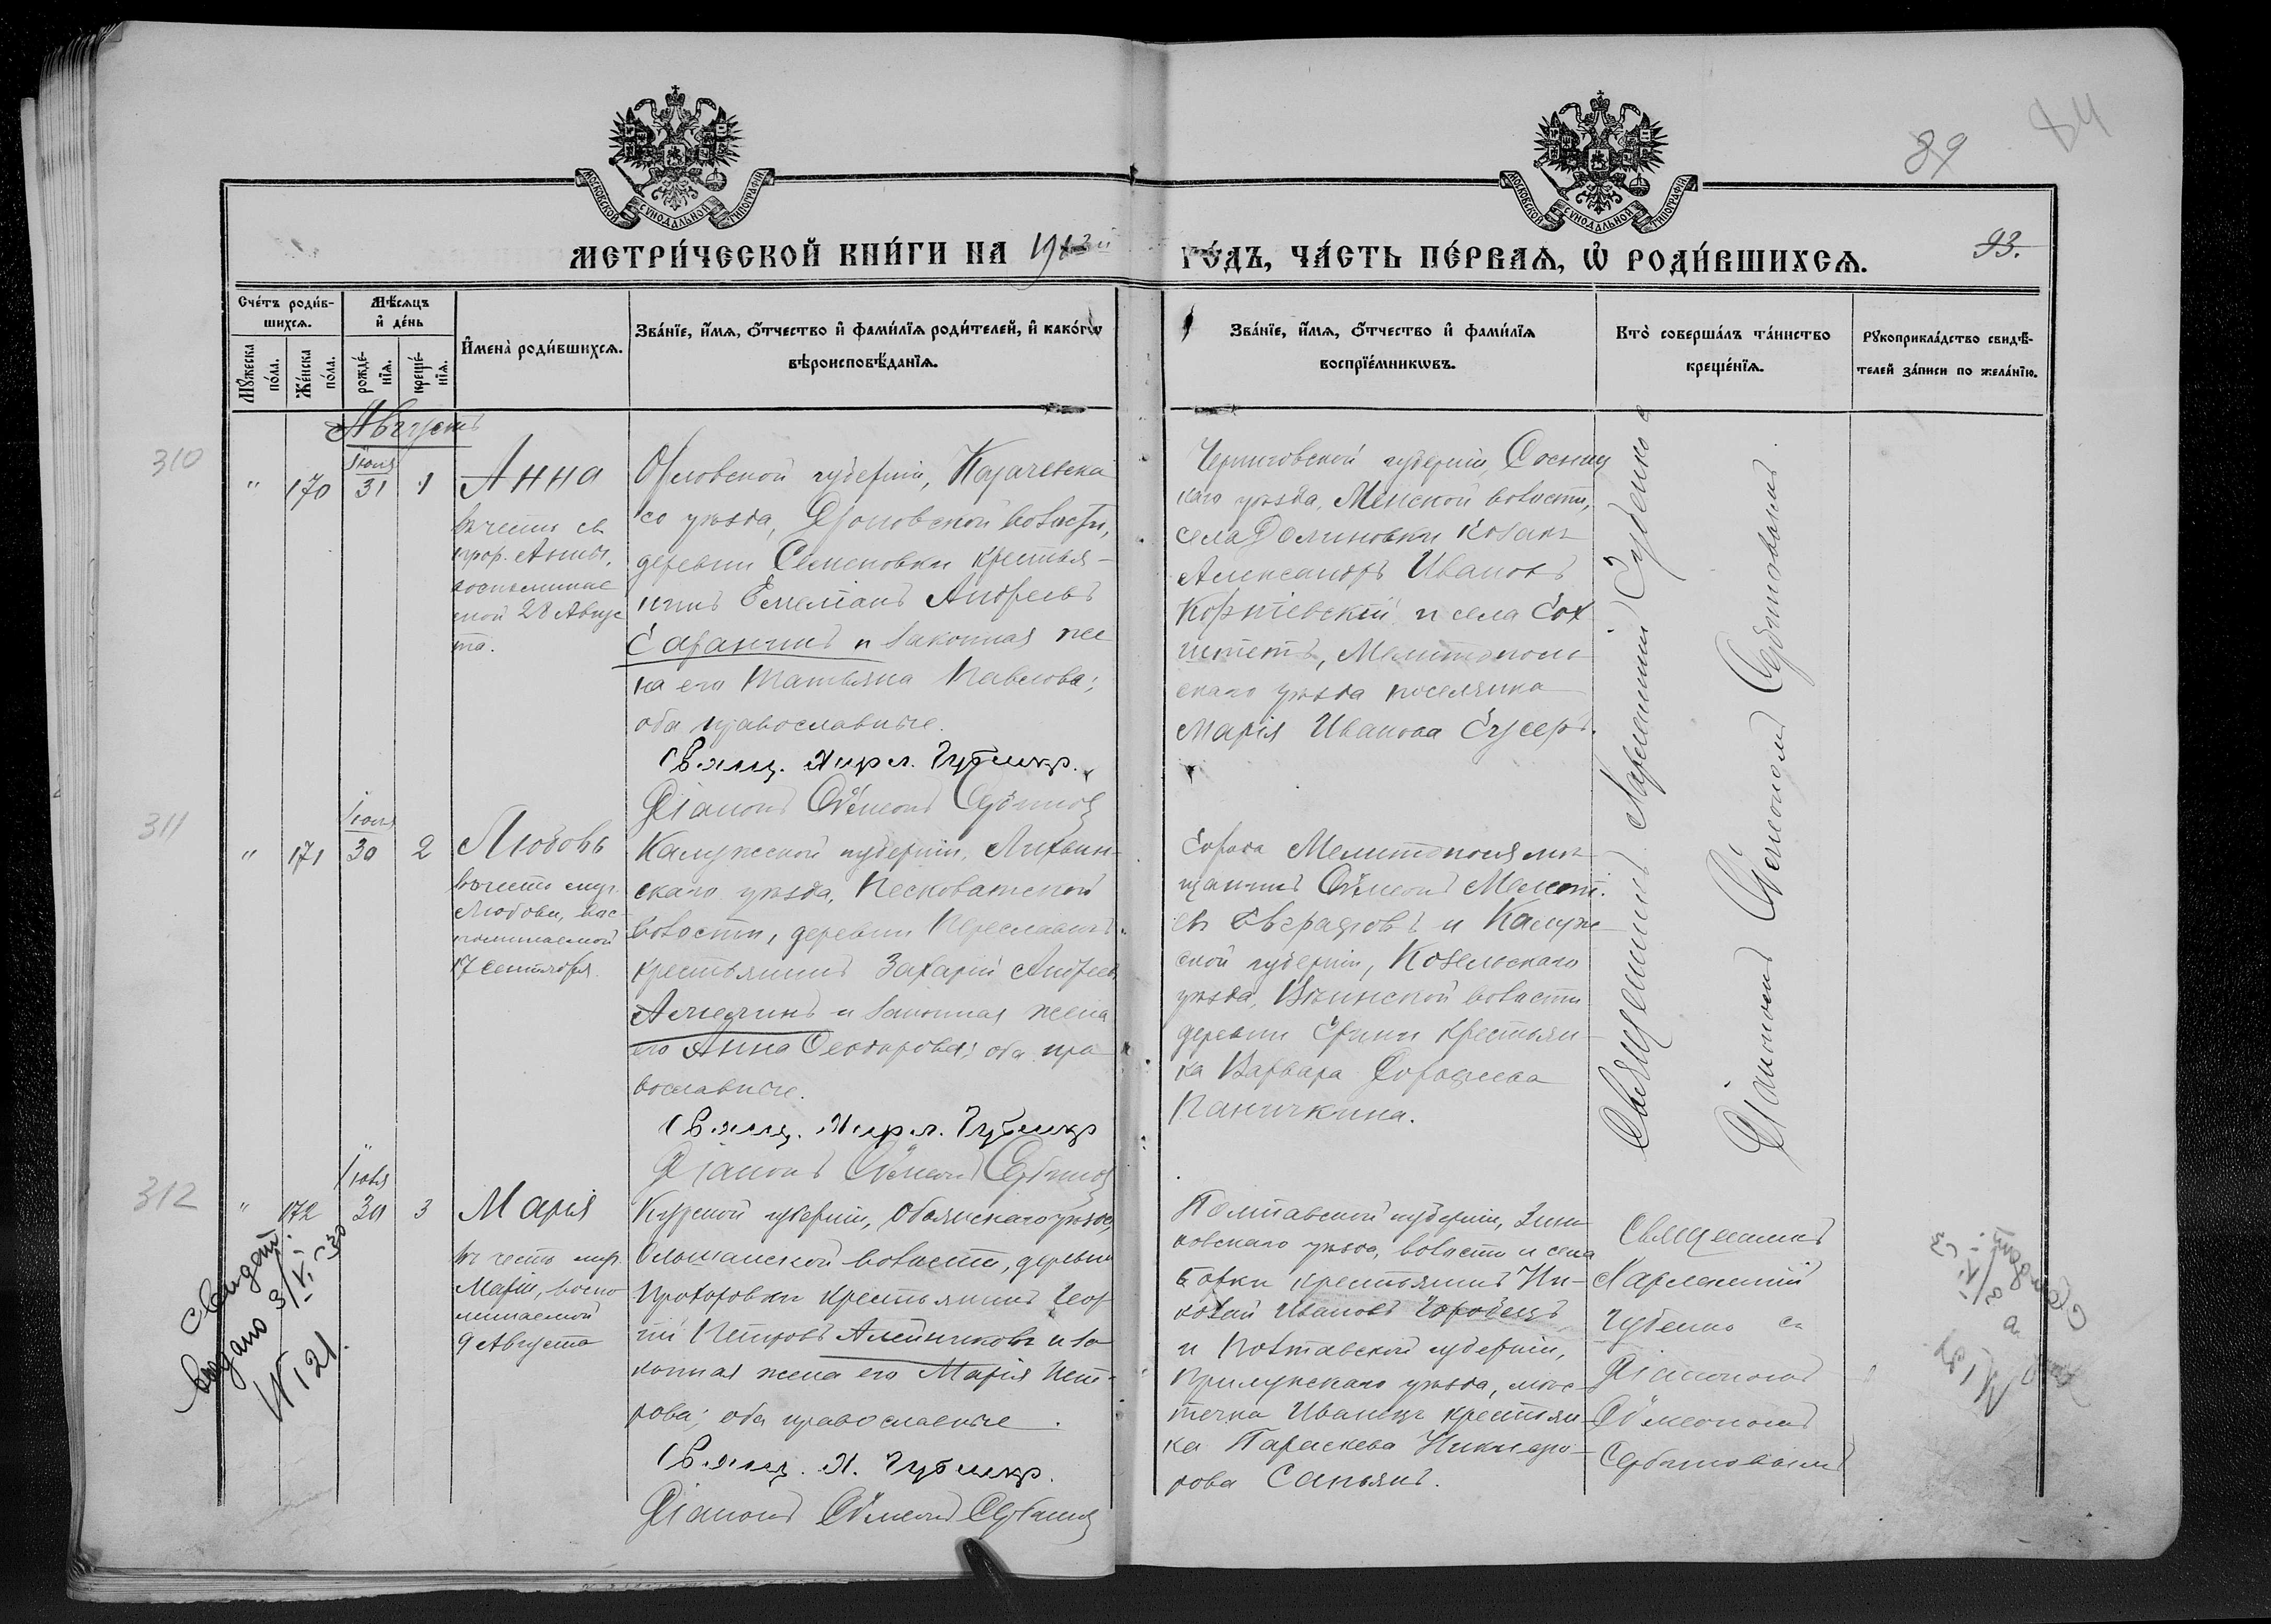 МОСКОВСКОЙ СѴНОДАЛЬНОЙ ТИПОГРАФІИ
МОСКОВСКОЙ СѴНОДАЛЬНОЙ ТИПОГРАФІИ
84
89
93.
МЕТРИ́ЧЕСКОЙ КНИ́ГИ НА 1913й
ГО́ДЪ, ЧА́СТЬ ПЕ́РВАѦ, Ѡ҆ РОДИ́ВШИХСѦ.
Сче́тъ роди́в-
шихсѧ.
Мꙋ́жеска по́ла.
Же́нска по́ла.
Мѣ́сѧцъ
и҆ де́нь
рожде́-
нїѧ.
креще́-
нїѧ.
И҆мена̀ роди́вшихсѧ.
Зва́нїе, и҆́мѧ, ѻ҆́тчество и҆ фами́лїѧ роди́телей, и҆ како́гѡ
вѣроисповѣ́данїѧ.
Зва́нїе, и҆́мѧ, ѻ҆́тчество и҆ фами́лїѧ
воспрїе́мникѡвъ.
Кто̀ соверша́лъ та́инство
креще́нїѧ.
Рꙋкоприкла́дство свидѣ́-
телей за́писи по жела́нїю.
Августъ
310
" 170
Іюля
31 1
Анна
въ честь св.
прор. Анны,
воспоминае
мой 28 Авгус
та.
Орловской губерніи, Карачевска
го уѣзда, волости,
деревни Семеновки крестья-
нинъ Емеліанъ Андреевъ
Саранчинъ и законная же
на его Татьяна Павлова;
оба православные.
Свящ. Харл. Губенко.
Діаконъ Сѵмеонъ Сербинов
Черниговской губерніи, Сосниц
каго уѣзда, Менской волости,
села Долиновки козакъ
Александръ Ивановъ
Корніевскій и села Гох
штетъ, Мелитополь
скаго уѣзда поселянка
Марія Иванова Гуссеръ.
Священникъ Харлампій Губенко с
Діакономъ Сѵмеономъ Сербиновымъ.
311
" 171
Іюля
30 2
Любовь
въ честь муч.
Любови, вос-
поминаемой
17 Сентября.
Калужской губерніи, Лихвин-
скаго уѣзда, Песковатской
волости, деревни
крестьянинъ Захарій Андреев
Алешинъ и законная жена
его Анна Ѳеодорова; оба пра
вославные.
Свящ. Харл. Губенко
Діаконъ Сѵмеонъ Сербинов
Города Мелитополя мѣ-
щанинъ Сѵмеонъ
евъ Евграфовъ и Калуж
ской губерніи, Козельскаго
уѣзда, волости
деревни крестьян-
ка Варвара Дорофеева
Паничкина.
312
" 172
Іюля
30 3
Марія
въ честь мч.
Маріи, воспо
минаемой
9 Августа
Курской губерніи, Обоянскаго уѣзда,
Ольшанской волости, деревни
Прохоровки крестьянинъ Геор
гій Петровъ Алейниковъ и за
конная жена его Марія Пет-
рова; оба православные.
Свящ. Х. Губенко.
Діаконъ Сѵмеонъ Сербинов
Полтавской губерніи, Зинь
ковскаго уѣзда, волости и села
Борки крестьянинъ Ни-
колай Ивановъ Городецъ
и Полтавской губерніи,
Прилукскаго уѣзда, мѣс-
течка Иваницъ крестьян-
ка Параскева Никифо-
рова Сапьянъ.
Священникъ
Харлампій
Губенко съ
Діакономъ
Сѵмеономъ
Сербиновымъ
Свидет.
выдано 3/VI-30
№ 121.